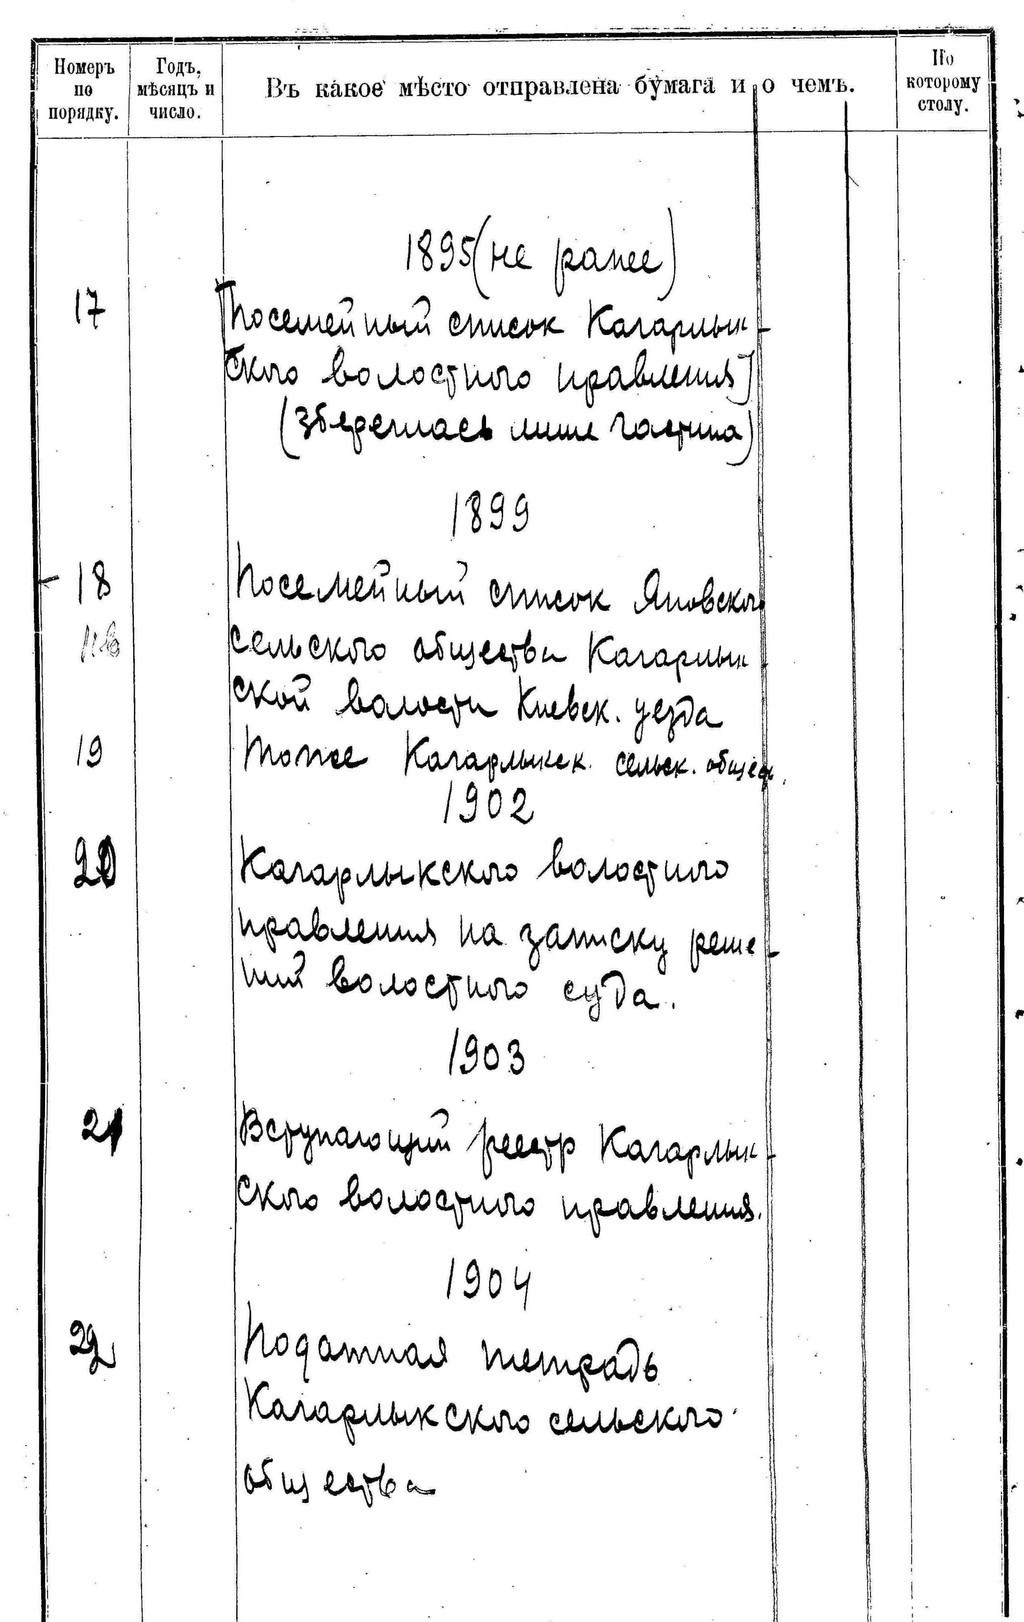 Номеръ по порядку.
Годъ, мѣсяцъ и число.
Въ какое мѣсто отправлена бумага и о чемъ.
По которому столу.
1895 (не ранее)
17 [Посемейный список Кагарлык-
ского волостного правления]
(збереглась лише частина)
1899
18 Посемейный список Яновского
сельского общества Кагарлык-
ской волости Киевск. уезда
19 Тоже Кагарлыкск. сельск. общест.
1902
20 Кагарлыкского волостного
правления на записку реше-
ний волостного суда.
1903
21 Вступающий реестр Кагарлык-
ского волостного правления.
1904
22 Податная тетрадь
Кагарлыкского сельского
общества